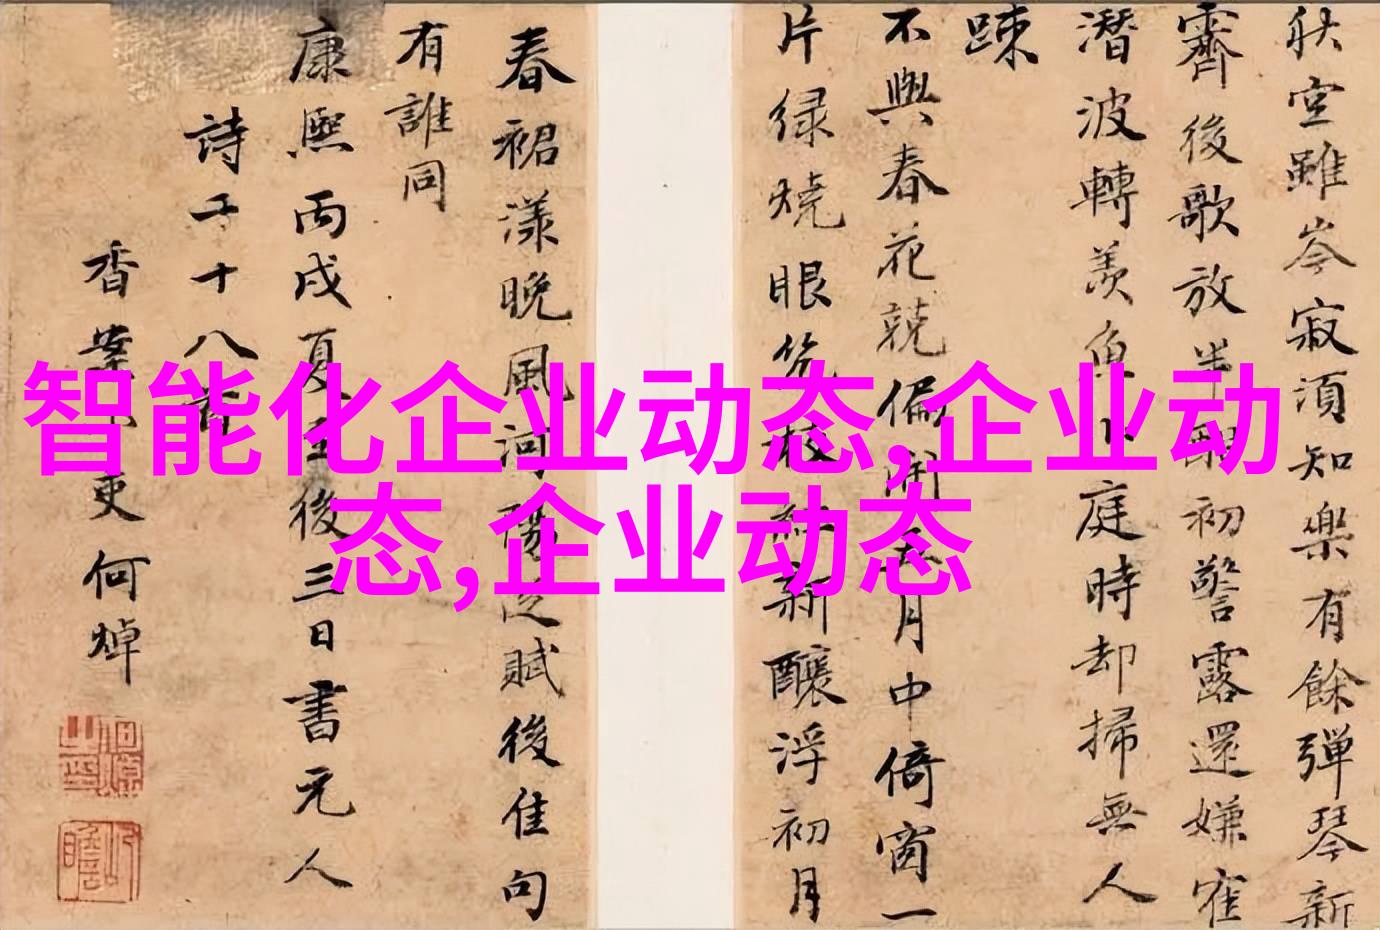 秋空雖岑寂須知樂有餘彈琴新
霽後歌放半酣初警露還嫌寉
潛波轉羨魚卜庭時却掃無人
踈
不與春花競偏開五月中倚窗一
片緑燒眼幾枝紅新釀浮初月
春裙漾晚風河陽從賦後佳句
有誰同
康熙丙戌夏至後三日書元人
詩二十八首
香案小吏何焯
智能化企业动态,企业动
态,企业动态